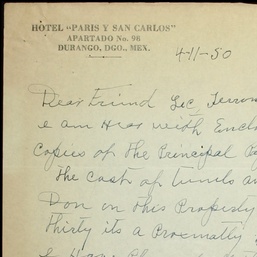 HOTEL "PARIS Y SAN CARLOS"
APARTADO No. 96
DURANGO, DGO., MEX.
4-11-50
Dear Friend Lic,
I am Hear with Encl
Copies of the Principal
the Cost of tunels an
Don on this Propesty
thirty its a Proximatly